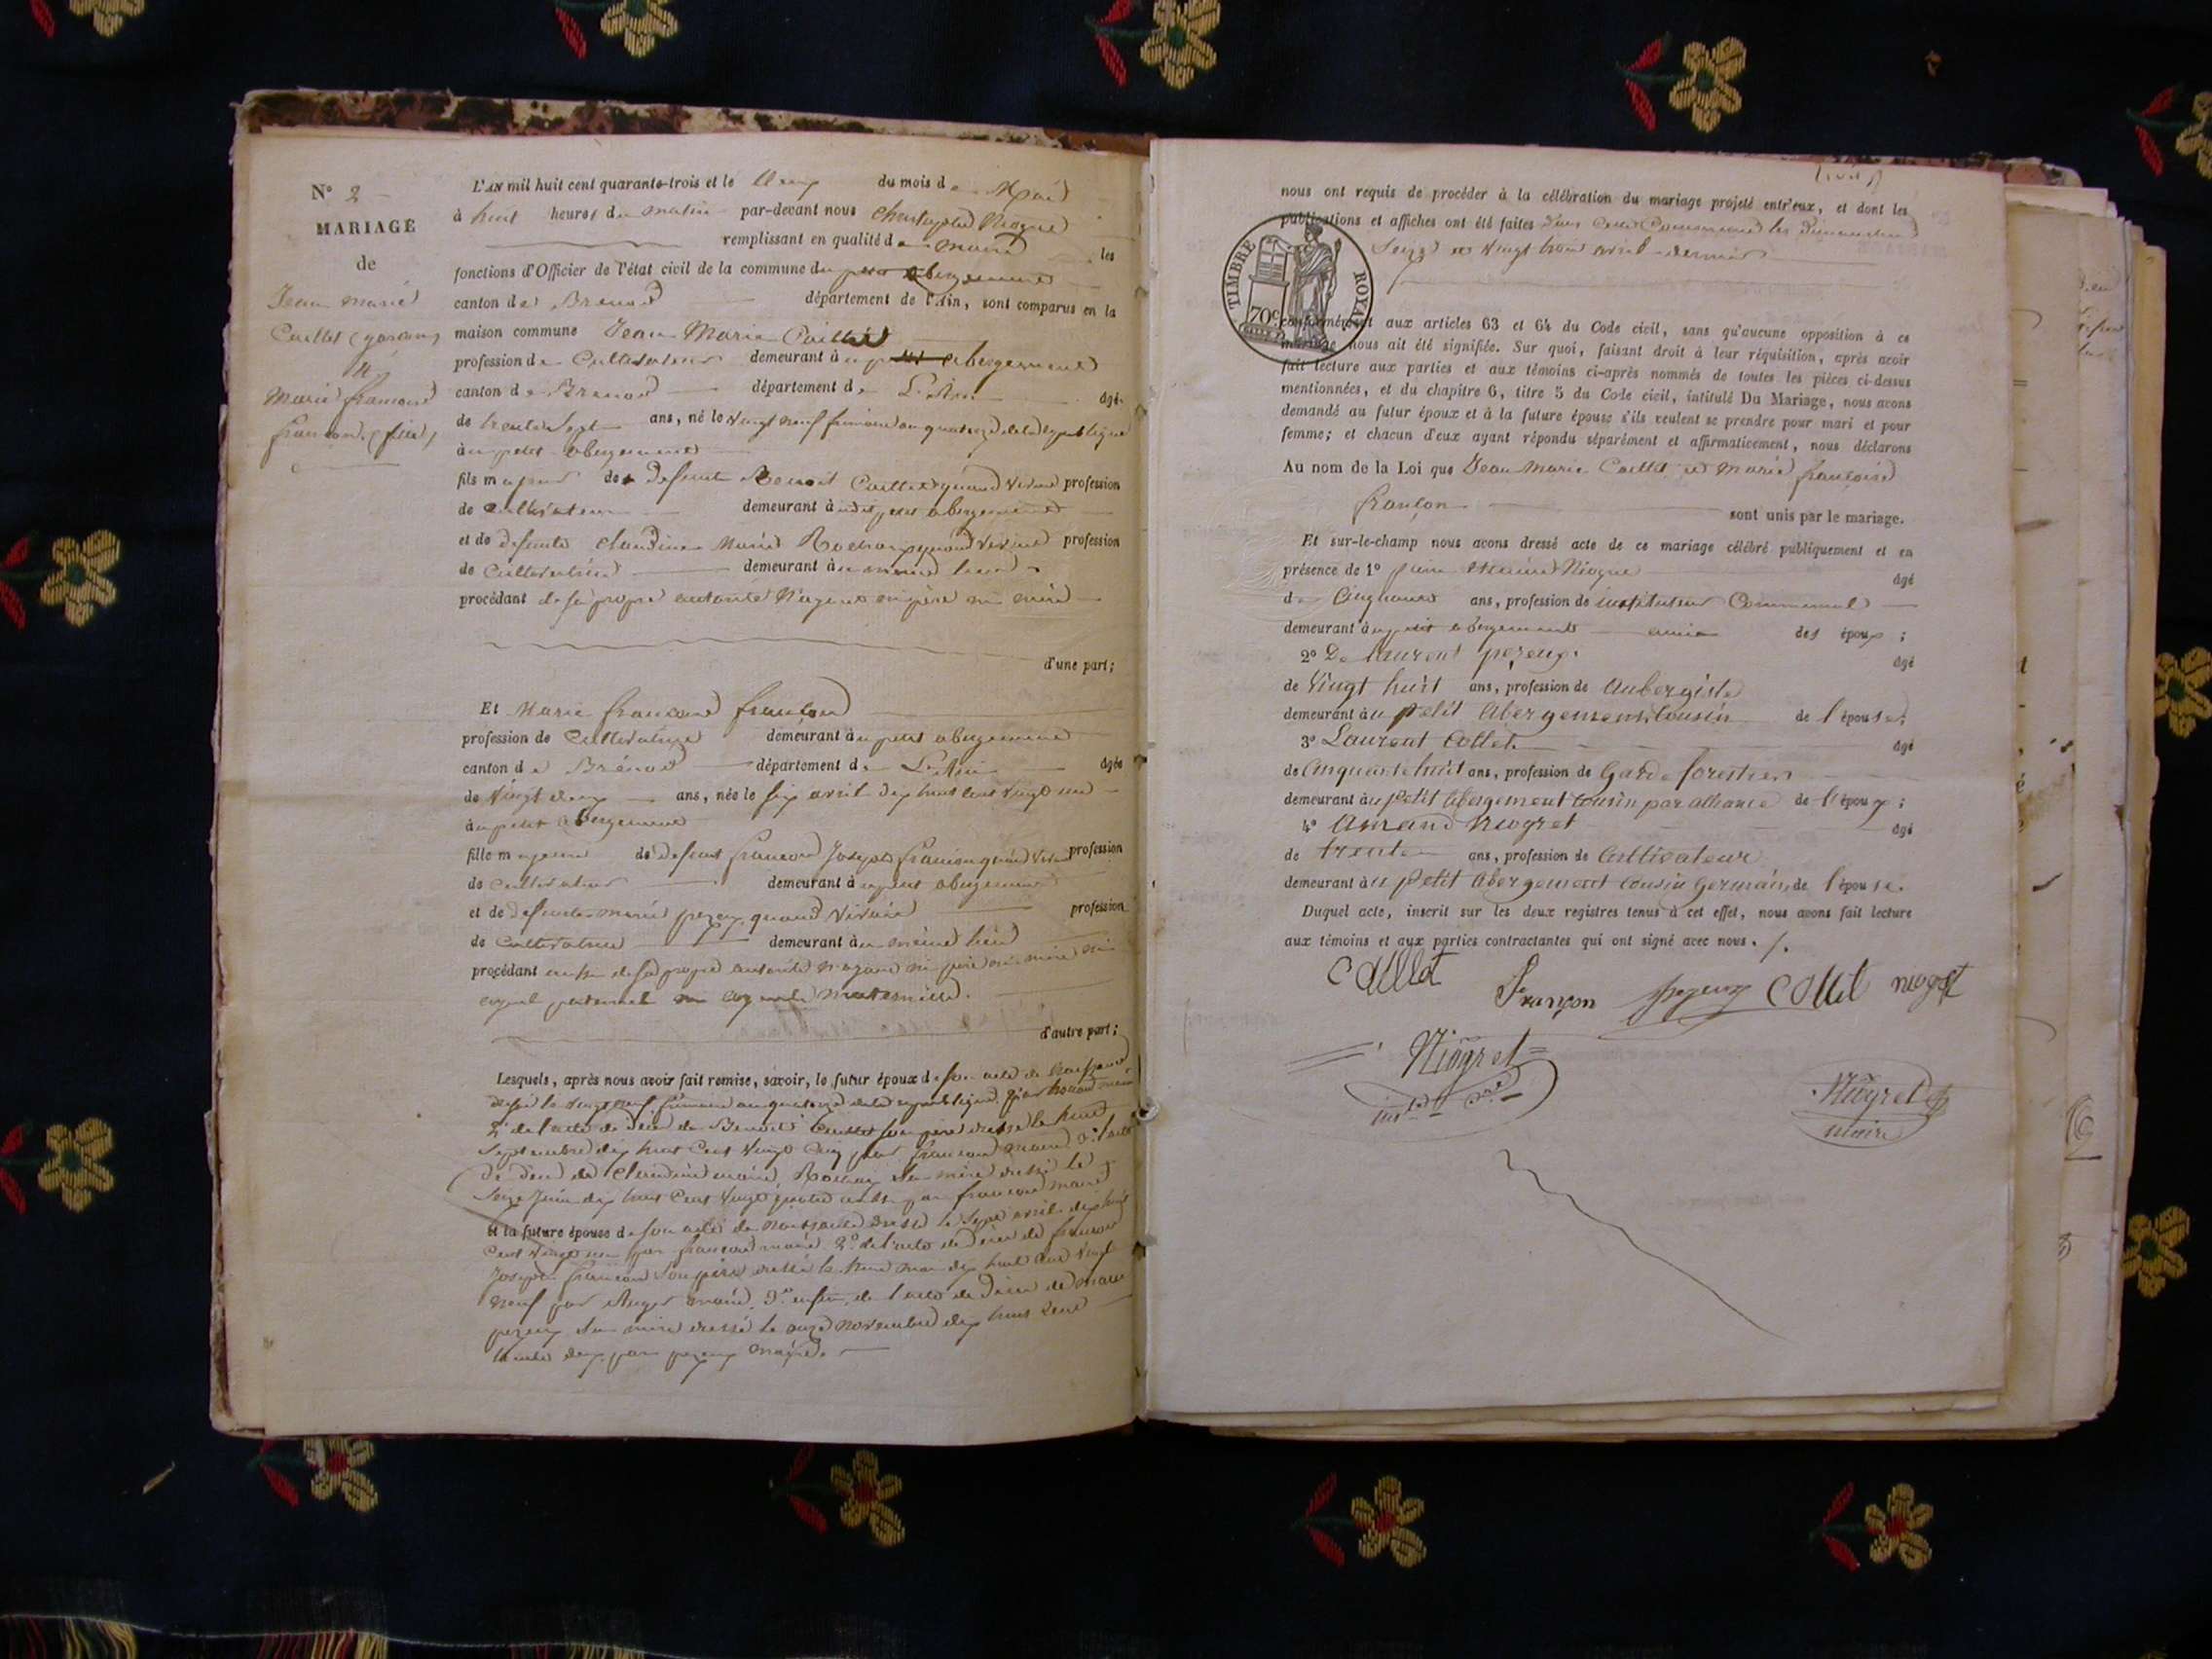 N° 2
MARIAGE
de
Jean marie
Caillet (garçon)
et
Marie françoise
françon (fille)
L'AN mil huit cent quarante-trois et le deux du mois de Mai
à huit heures du matin par-devant nous
remplissant en qualité de maire les
fonctions d'Officier de l'état civil de la commune du petit abergement
canton de Brenod département de l'Ain, sont comparus en la
maison commune Jean Marie Caillet
profession de Cultivateur demeurant au petit abergement
canton de Brenod département de L'Ain âgé
de trente Sept ans, né le vingt neuf frimaire an quatorze de la republique
au petit abergement
fils majeur de defunt Benoit Caillet quand vivait profession
de Cultivateur demeurant audit petit abergement
et de defunte Claudine Marie quand vivait profession
de Cultivatrice demeurant au même lieu
procédant de sa propre autorité n'ayant ni père ni mère
d'une part;
Et Marie françoise françon
profession de Cultivatrice demeurant au petit abergement
canton de Brénod département de L'Ain âgée
de Vingt deux ans, née le six avril dix huit cent vingt un
au petit abergement
fille majeure de defunt françois Joseph françon quand vivait profession
de Cultivateur demeurant au petit abergement
et de defunte marie pereux quand vivait profession
de Cultivatrice demeurant au même lieu
procédant aussi de sa propre autorité n'ayant ni père ni mère ni
ayeul paternel ni maternelle.
d'autre part;
Lesquels, après nous avoir fait remise, savoir, le futur époux de son acte de naissance
dressé le vingt neuf frimaire an quatorze de la republique par maire
2° de l'acte de décès de Benoit Caillet son père dressé le huit
Septembre dix huit Cent Vingt Cinq par françon maire 3° l'acte
de décès de Claudine marie sa mère dressé le
Seize Juin dix huit Cent Vingt quatre aussi par françon maire
et la future épouse de son acte de naissance dressé le Sept avril dix huit
Cent vingt un par françon maire 2° de l'acte de décès de françois
Joseph françon Son père dressé le huit mai dix huit Cent Vingt
neuf par maire, 3° enfin de l'acte de décès de marie
pereux sa mère dressé le onze novembre dix huit Cent
trente deux par perreux maire.
nous ont requis de procéder à la célébration du mariage projeté entr'eux, et dont les
publications et affiches ont été faites dans cette Commune les dimanches
Seize et Vingt trois avril dernier
TIMBRE ROYAL
70c
conformément aux articles 63 et 64 du Code civil, sans qu'aucune opposition à ce
mariage nous ait été signifiée. Sur quoi, faisant droit à leur réquisition, après avoir
fait lecture aux parties et aux témoins ci-après nommés de toutes les pièces ci-dessus
mentionnées, et du chapitre 6, titre 5 du Code civil, intitulé Du Mariage, nous avons
demandé au futur époux et à la future épouse s'ils veulent se prendre pour mari et pour
femme; et chacun d'eux ayant répondu séparément et affirmativement, nous déclarons
Au nom de la Loi que Jean Marie Caillet et Marie françoise
françon sont unis par le mariage.
Et sur-le-champ nous avons dressé acte de ce mariage célébré publiquement et en
présence de 1° âgé
de ans, profession de instituteur Communal
demeurant au petit abergement ami des époux;
2° De laurent pereux. âgé
de Vingt huit ans, profession de Aubergiste
demeurant au petit Abergement Cousin de l'épouse;
3° Laurent Collet âgé
de Cinquante huit ans, profession de Garde forestier
demeurant au petit Abergement Cousin par alliance de l'époux;
4° Amand Niogret âgé
de trente ans, profession de Cultivateur
demeurant au petit Abergement Cousin Germain de l'épouse.
Duquel acte, inscrit sur les deux registres tenus à cet effet, nous avons fait lecture
aux témoins et aux parties contractantes qui ont signé avec nous.
Caillet Françon perreux Collet niogret
Niogret
Niogret
maire